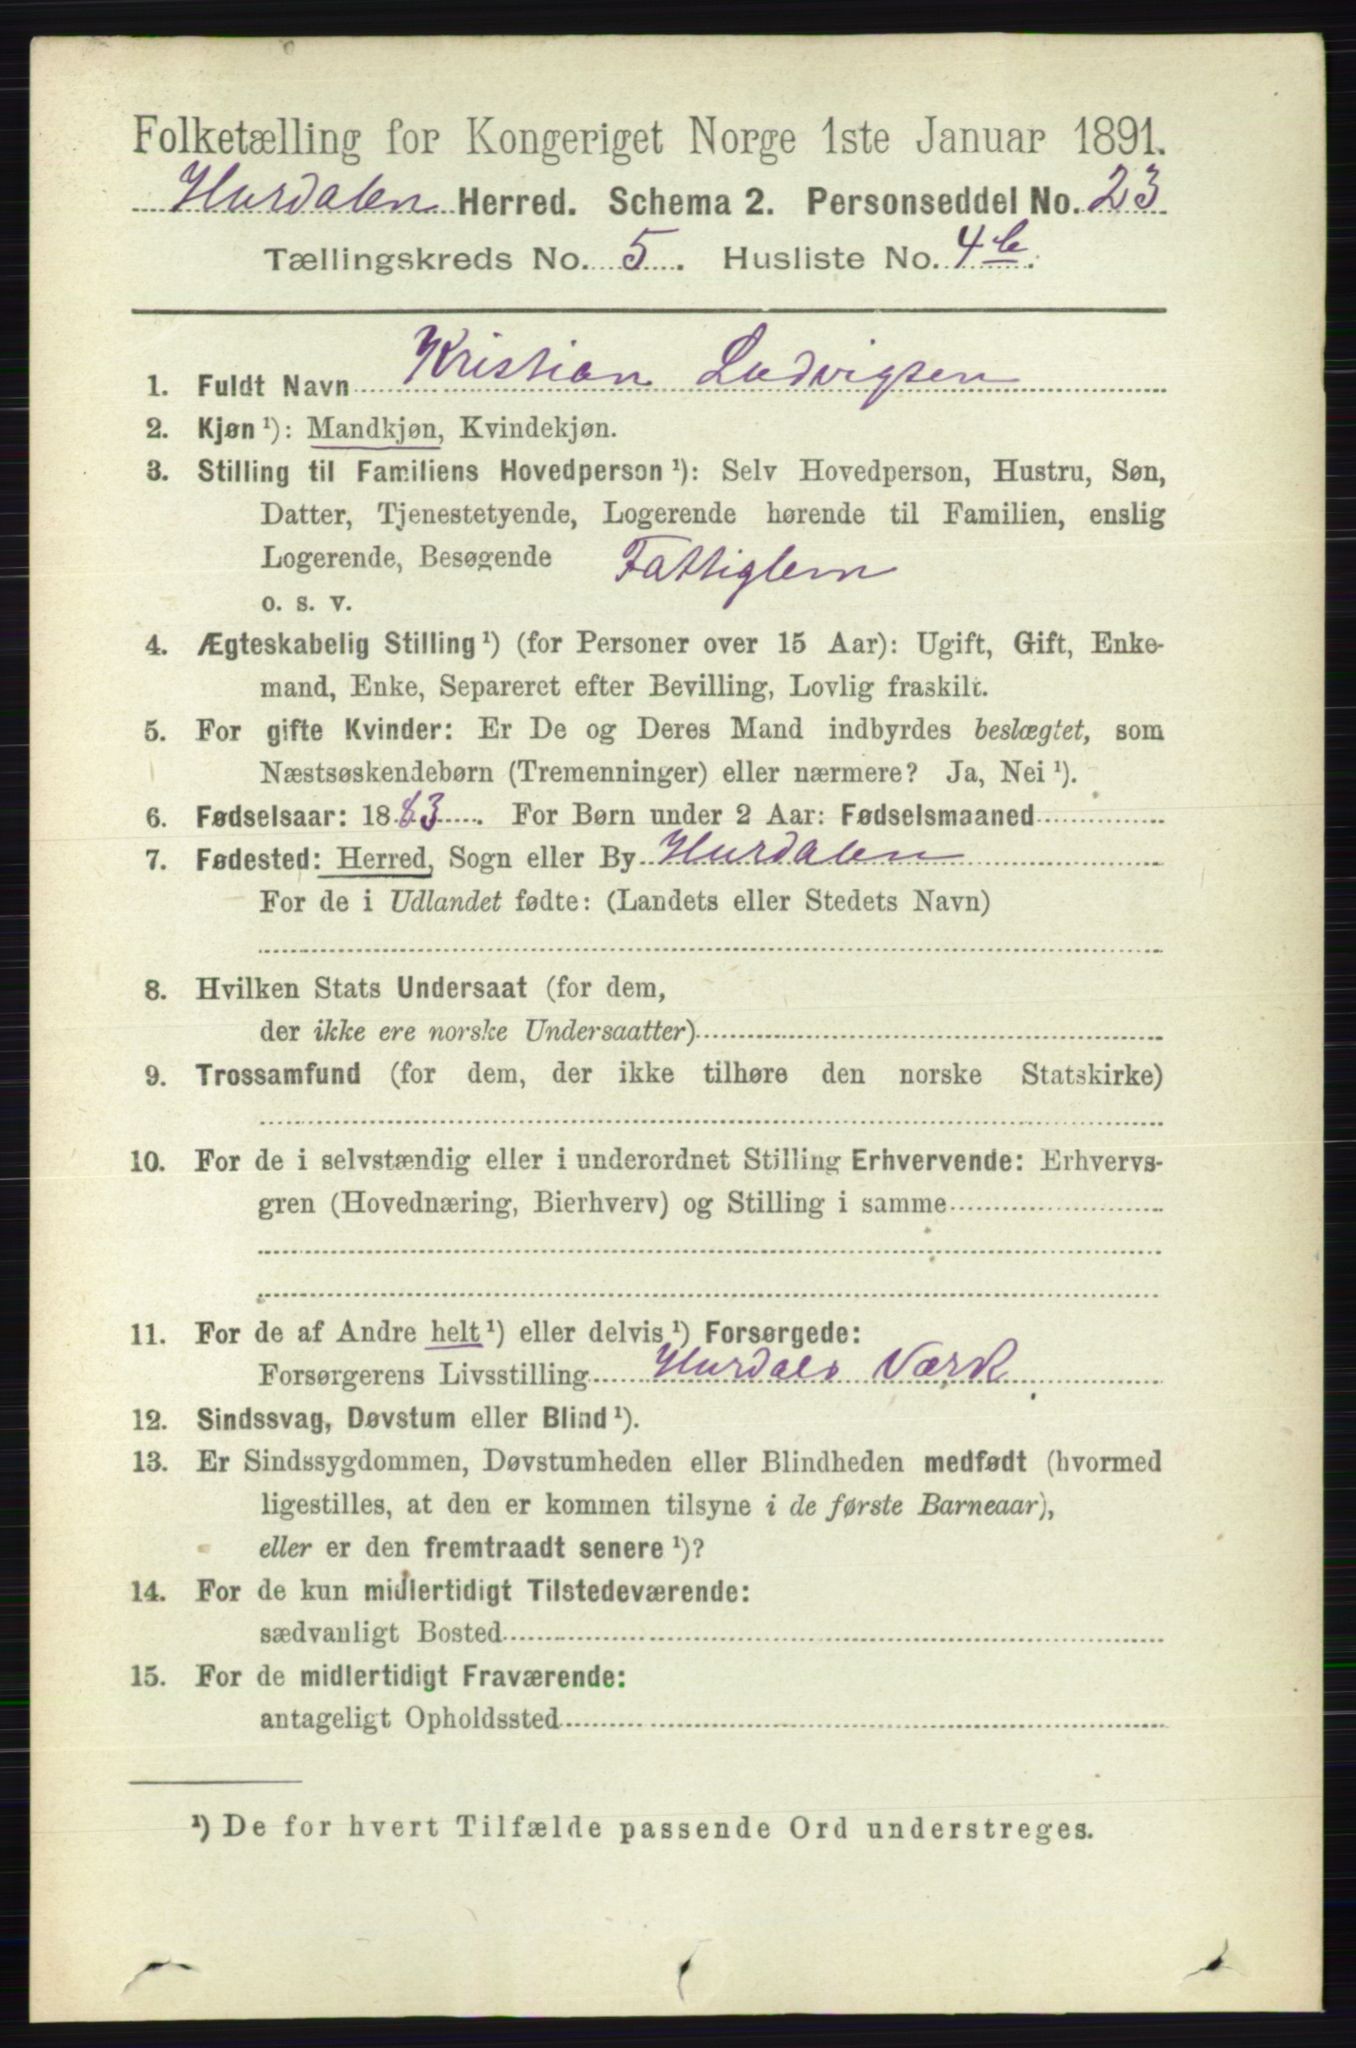 Folketælling for Kongeriget Norge 1ste Januar 1891.
Hurdalen Herred. Schema 2. Personseddel No. 23
Tællingskreds No. 5. Husliste No. 4b.
1. Fuldt Navn Kristian Ludvigsen
2. Kjøn ¹): Mandkjøn, Kvindekjøn.
3. Stilling til Familiens Hovedperson ¹): Selv Hovedperson, Hustru, Søn,
Datter, Tjenestetyende, Logerende hørende til Familien, enslig
Logerende, Besøgende Fattiglem
o. s. v.
4. Ægteskabelig Stilling ¹) (for Personer over 15 Aar): Ugift, Gift, Enke-
mand, Enke, Separeret efter Bevilling, Lovlig fraskilt.
5. For gifte Kvinder: Er De og Deres Mand indbyrdes beslægtet, som
Næstsøskendebørn (Tremenninger) eller nærmere? Ja, Nei ¹).
6. Fødselsaar: 1883. For Børn under 2 Aar: Fødselsmaaned
7. Fødested: Herred, Sogn eller By Hurdalen
For de i Udlandet fødte: (Landets eller Stedets Navn)
8. Hvilken Stats Undersaat (for dem,
der ikke ere norske Undersaatter)
9. Trossamfund (for dem, der ikke tilhøre den norske Statskirke)
10. For de i selvstændig eller i underordnet Stilling Erhvervende: Erhvervs-
gren (Hovednæring, Bierhverv) og Stilling i samme
11. For de af Andre helt ¹) eller delvis ¹) Forsørgede:
Forsørgerens Livsstilling Hurdals Værk
12. Sindssvag, Døvstum eller Blind ¹).
13. Er Sindssygdommen, Døvstumheden eller Blindheden medfødt (hvormed
ligestilles, at den er kommen tilsyne i de første Barneaar),
eller er den fremtraadt senere ¹)?
14. For de kun midlertidigt Tilstedeværende:
sædvanligt Bosted
15. For de midlertidigt Fraværende:
antageligt Opholdssted
¹) De for hvert Tilfælde passende Ord understreges.